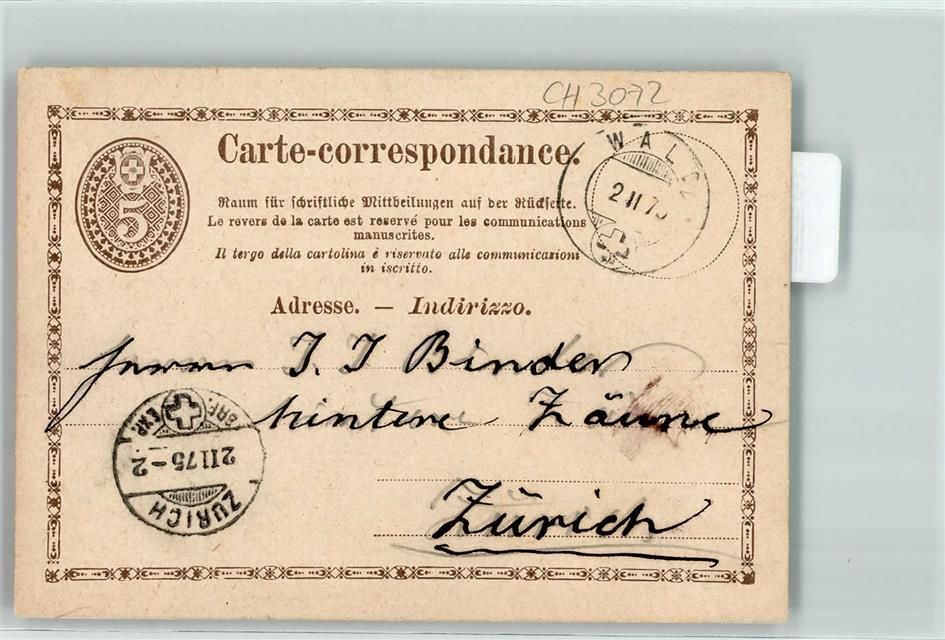 CH 3072
Carte-correspondance.
5
WALD
2 II 75
Raum für schriftliche Mittheilungen auf der Rückseite.
Le revers de la carte est reservé pour les communications
manuscrites.
Il tergo della cartolina è riservato alle communicazioni
in iscritto.
Adresse. — Indirizzo.
Herrn J. J Binder
hintere Zäune
Zürich
ZÜRICH
2 II 75 – 2
BRF. EXP.